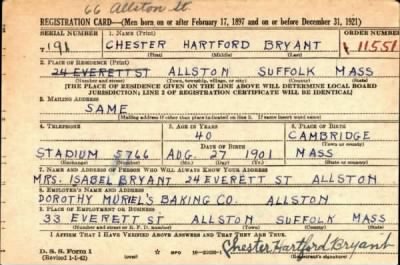 66 Allston St.
REGISTRATION CARD—(Men born on or after February 17, 1897 and on or before December 31, 1921)
SERIAL NUMBER 1. NAME (Print) ORDER NUMBER
T 191 CHESTER HARTFORD BRYANT 11551
(First) (Middle) (Last)
2. PLACE OF RESIDENCE (Print)
24 EVERETT ST ALLSTON SUFFOLK MASS
(Number and street) (Town, township, village, or city) (County) (State)
[THE PLACE OF RESIDENCE GIVEN ON THE LINE ABOVE WILL DETERMINE LOCAL BOARD
JURISDICTION; LINE 2 OF REGISTRATION CERTIFICATE WILL BE IDENTICAL]
3. MAILING ADDRESS
SAME
[Mailing address if other than place indicated on line 2. If same insert word same]
4. TELEPHONE 5. AGE IN YEARS 6. PLACE OF BIRTH
40 CAMBRIDGE
DATE OF BIRTH (Town or county)
STADIUM 5766 AUG. 27 1901 MASS
(Exchange) (Number) (Mo.) (Day) (Yr.) (State or country)
7. NAME AND ADDRESS OF PERSON WHO WILL ALWAYS KNOW YOUR ADDRESS
MRS. ISABEL BRYANT 24 EVERETT ST ALLSTON
8. EMPLOYER'S NAME AND ADDRESS
DOROTHY MURIEL'S BAKING CO. ALLSTON
9. PLACE OF EMPLOYMENT OR BUSINESS
33 EVERETT ST ALLSTON SUFFOLK MASS
(Number and street or R. F. D. number) (Town) (County) (State)
I AFFIRM THAT I HAVE VERIFIED ABOVE ANSWERS AND THAT THEY ARE TRUE.
D. S. S. Form 1
(Revised 1-1-42) GPO Chester Hartford Bryant
(Registrant's signature)